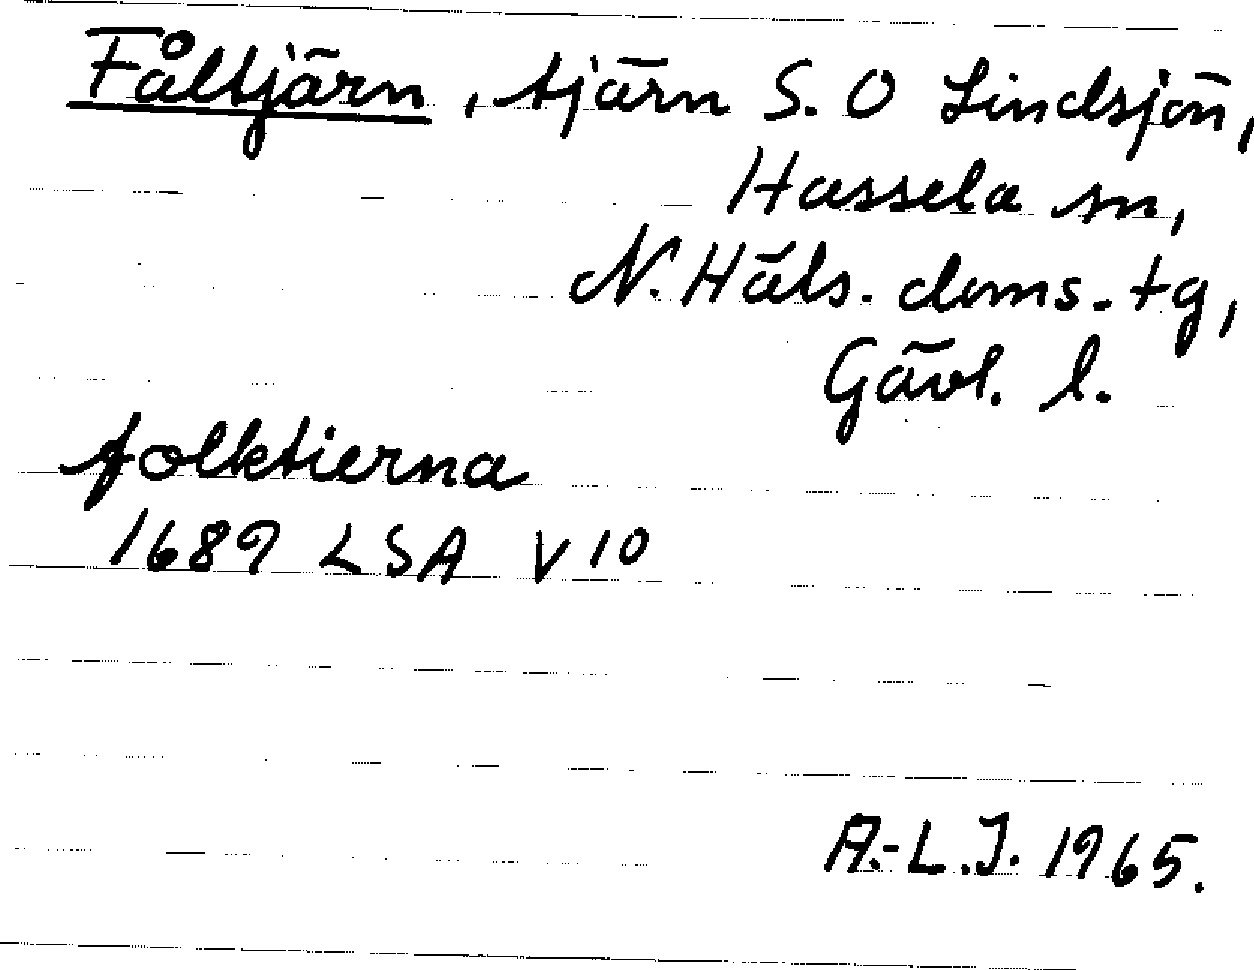 Fåltjärn, tjärn S. O Lindsjön,
Hassela sn,
N. Häls. doms. tg,
Gävl. l.
folktierna
1689 LSA V 10
A.-L.J. 1965.